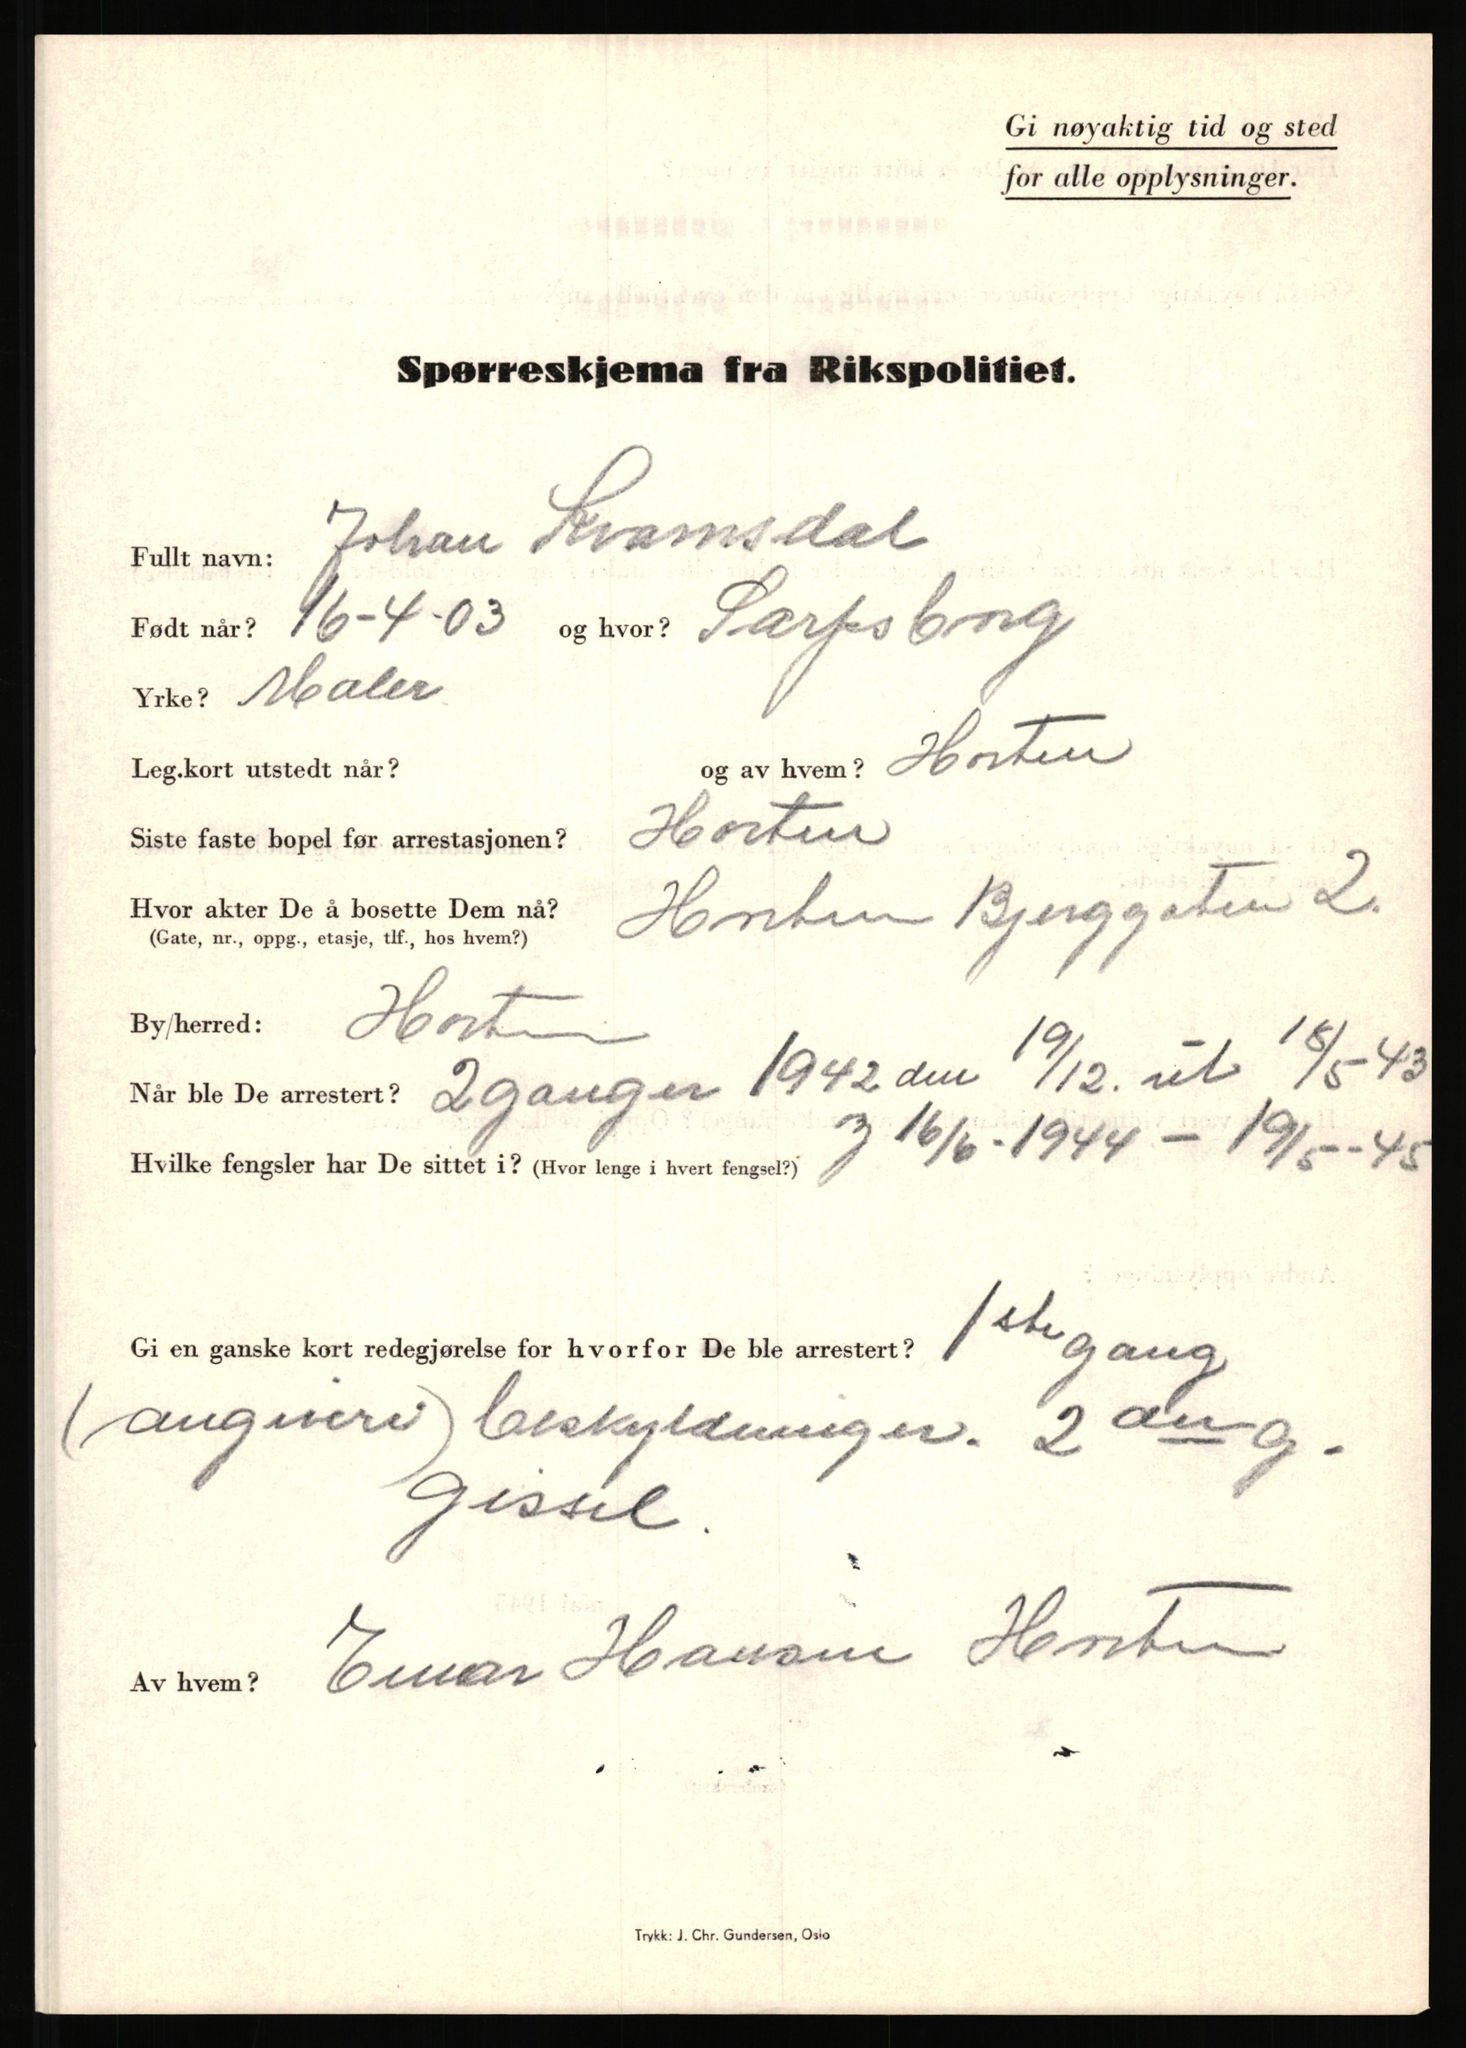 Gi nøyaktig tid og sted
for alle opplysninger.
Spørreskjema fra Rikspolitiet.
Fullt navn: Johan Kvamsdal
Født når? 16-4-03 og hvor? Sarpsborg
Yrke? Maler
Leg.kort utstedt når? og av hvem? Horten
Siste faste bopel før arrestasjonen? Horten
Hvor akter De å bosette Dem nå? Horten Bjerggaten 2.
(Gate, nr., oppg., etasje, tlf., hos hvem?)
By/herred: Horten
Når ble De arrestert? 2 ganger 1942 den 19/12. ut 18/5-43
16/6-1944 - 19/5-45
Hvilke fengsler har De sittet i? (Hvor lenge i hvert fengsel?)
Gi en ganske kort redegjørelse for hvorfor De ble arrestert? 1ste gang
(angiveri) beskyldninger. 2 den g.
Gissel.
Av hvem? Einar Hansen Horten
Trykk: J. Chr. Gundersen, Oslo